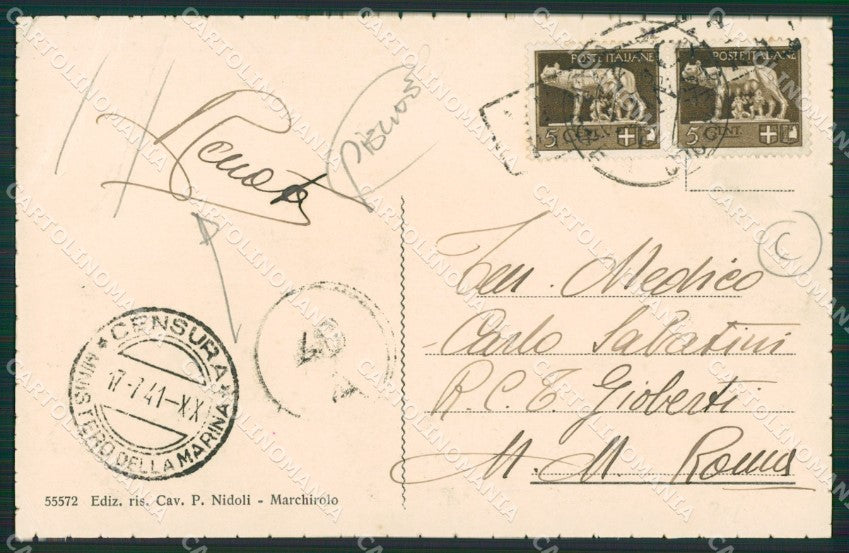 POSTE ITALIANE
5 CENT.
POSTE ITALIANE
5 CENT.
Renato
C
Ten. Medico
Carlo Sabatini
R.C.T. Gioberti
M. M. Roma
* CENSURA *
17-7 41-XX
MINISTERO DELLA MARINA
55572 Ediz. ris. Cav. P. Nidoli - Marchirolo
CARTOLINOMANIA